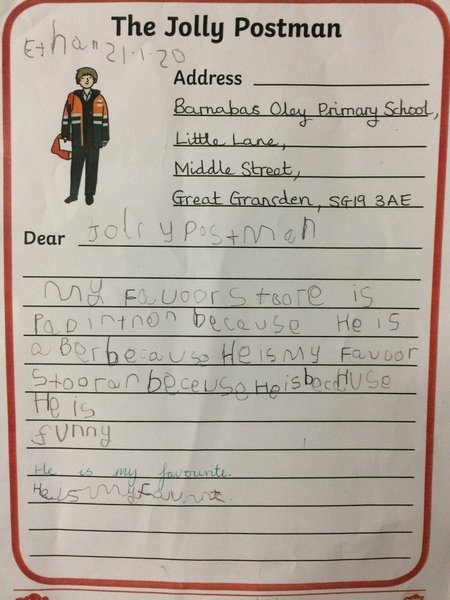 The Jolly Postman
Ethan 21.1.20
Address
Barnabas Oley Primary School,
Little Lane,
Middle Street,
Great Gransden, SG19 3AE
Dear Jolly Postman
My Favoor Stoore is
Padintnon because He is
a Ber because He is my Favoor
Stooran beceuse He is becHuse
He is
funny
He is my favourite.
He is my Favourite.